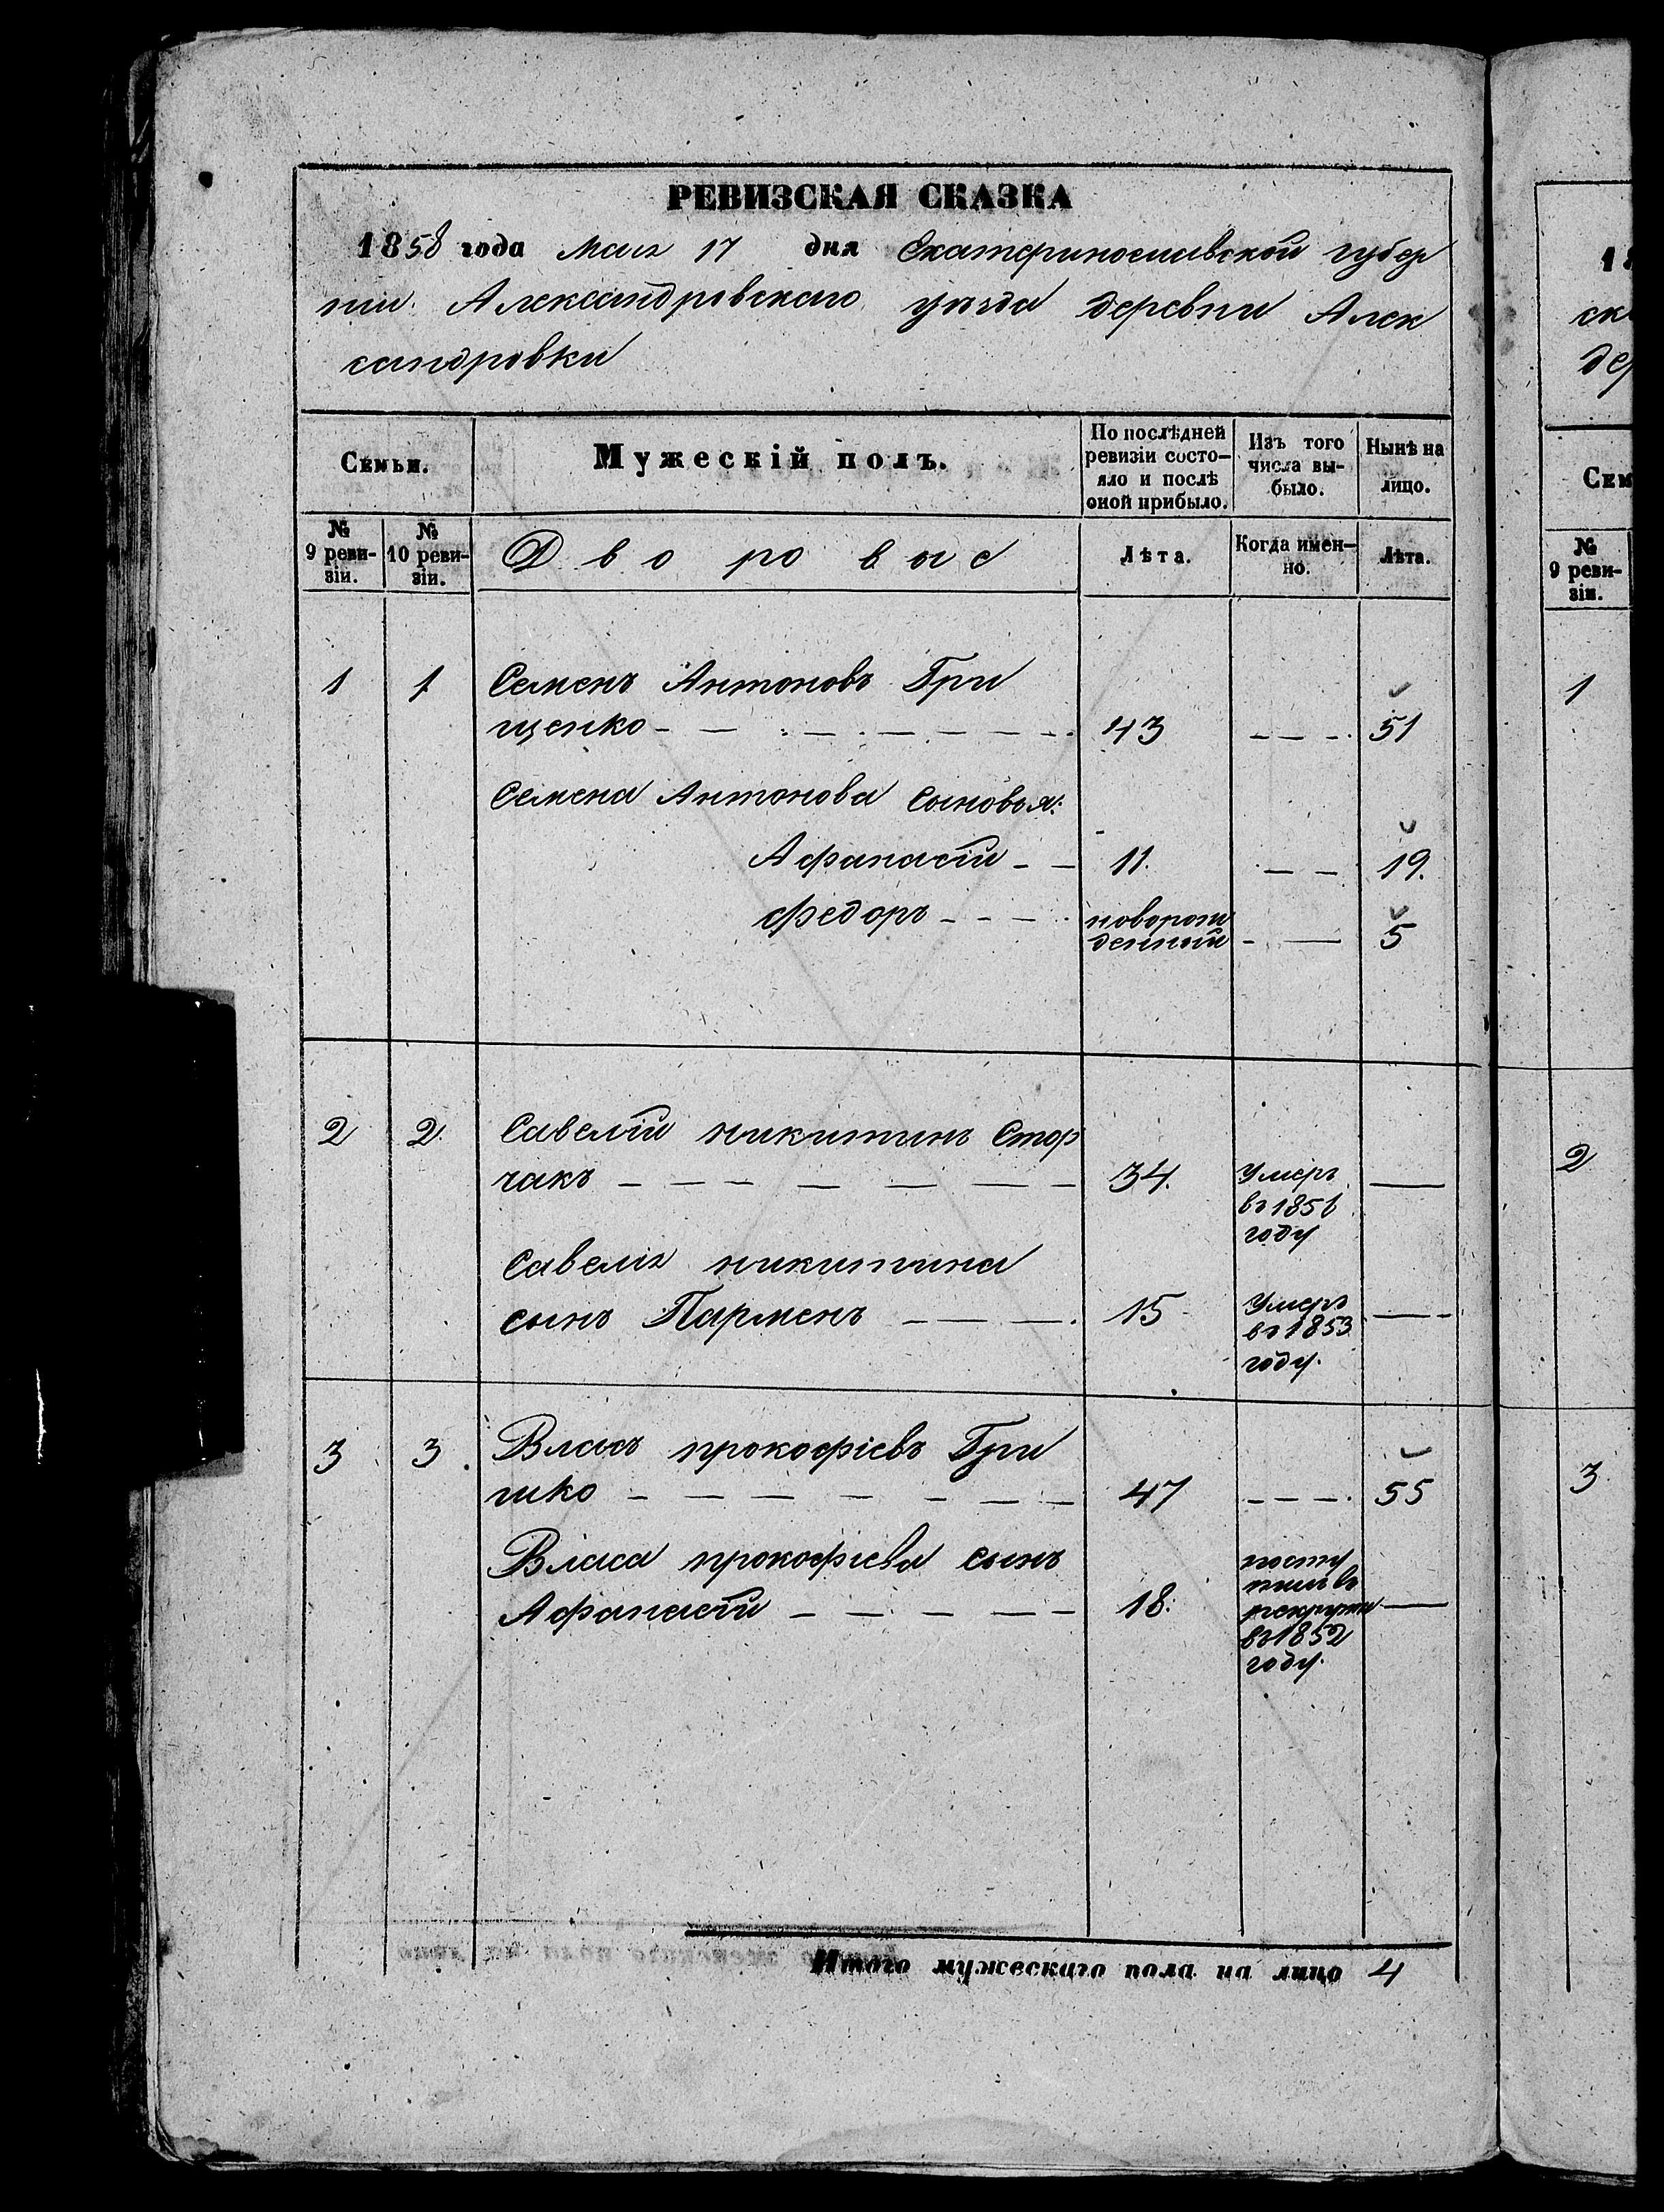 РЕВИЗСКАЯ СКАЗКА
1858 года Маія 17 дня Екатеринославской губер
ніи Александровскаго уѣзда деревни Алек
сандровки
Семьи.
Мужескій полъ.
По послѣдней
ревизіи состо-
яло и послѣ
оной прибыло.
Изъ того
числа вы-
было.
Нынѣ на
лицо.
№
9 реви-
зіи.
№
10 реви-
зіи.
Дворовые
Лѣта.
Когда имен-
но.
Лѣта.
1 1 Семенъ Антоновъ Гри
щенко - - - - - 43 - - - 51
Семена Антонова Сыновья:
Афанасій - - 11. - - 19.
Федоръ - - - новорож
денный - — 5
2 2. Савелій никитинъ Стор
чакъ — — — — — 34. Умеръ —
въ 1856
году
Савелія никитина
сынъ Парменъ — — — 15 Умеръ —
въ 1853
году.
3 3. Власъ прокофіевъ Гри
шко — — — — — 47 - - - 55
Власа прокофіева сынъ
Афанасій — — — — — 18. посту
пилъ въ
рекруты —
въ 1852
году.
Итого мужескаго пола на лицо 4
18
ск
дер
Сем
№
9 реви-
зіи.
1
2
3